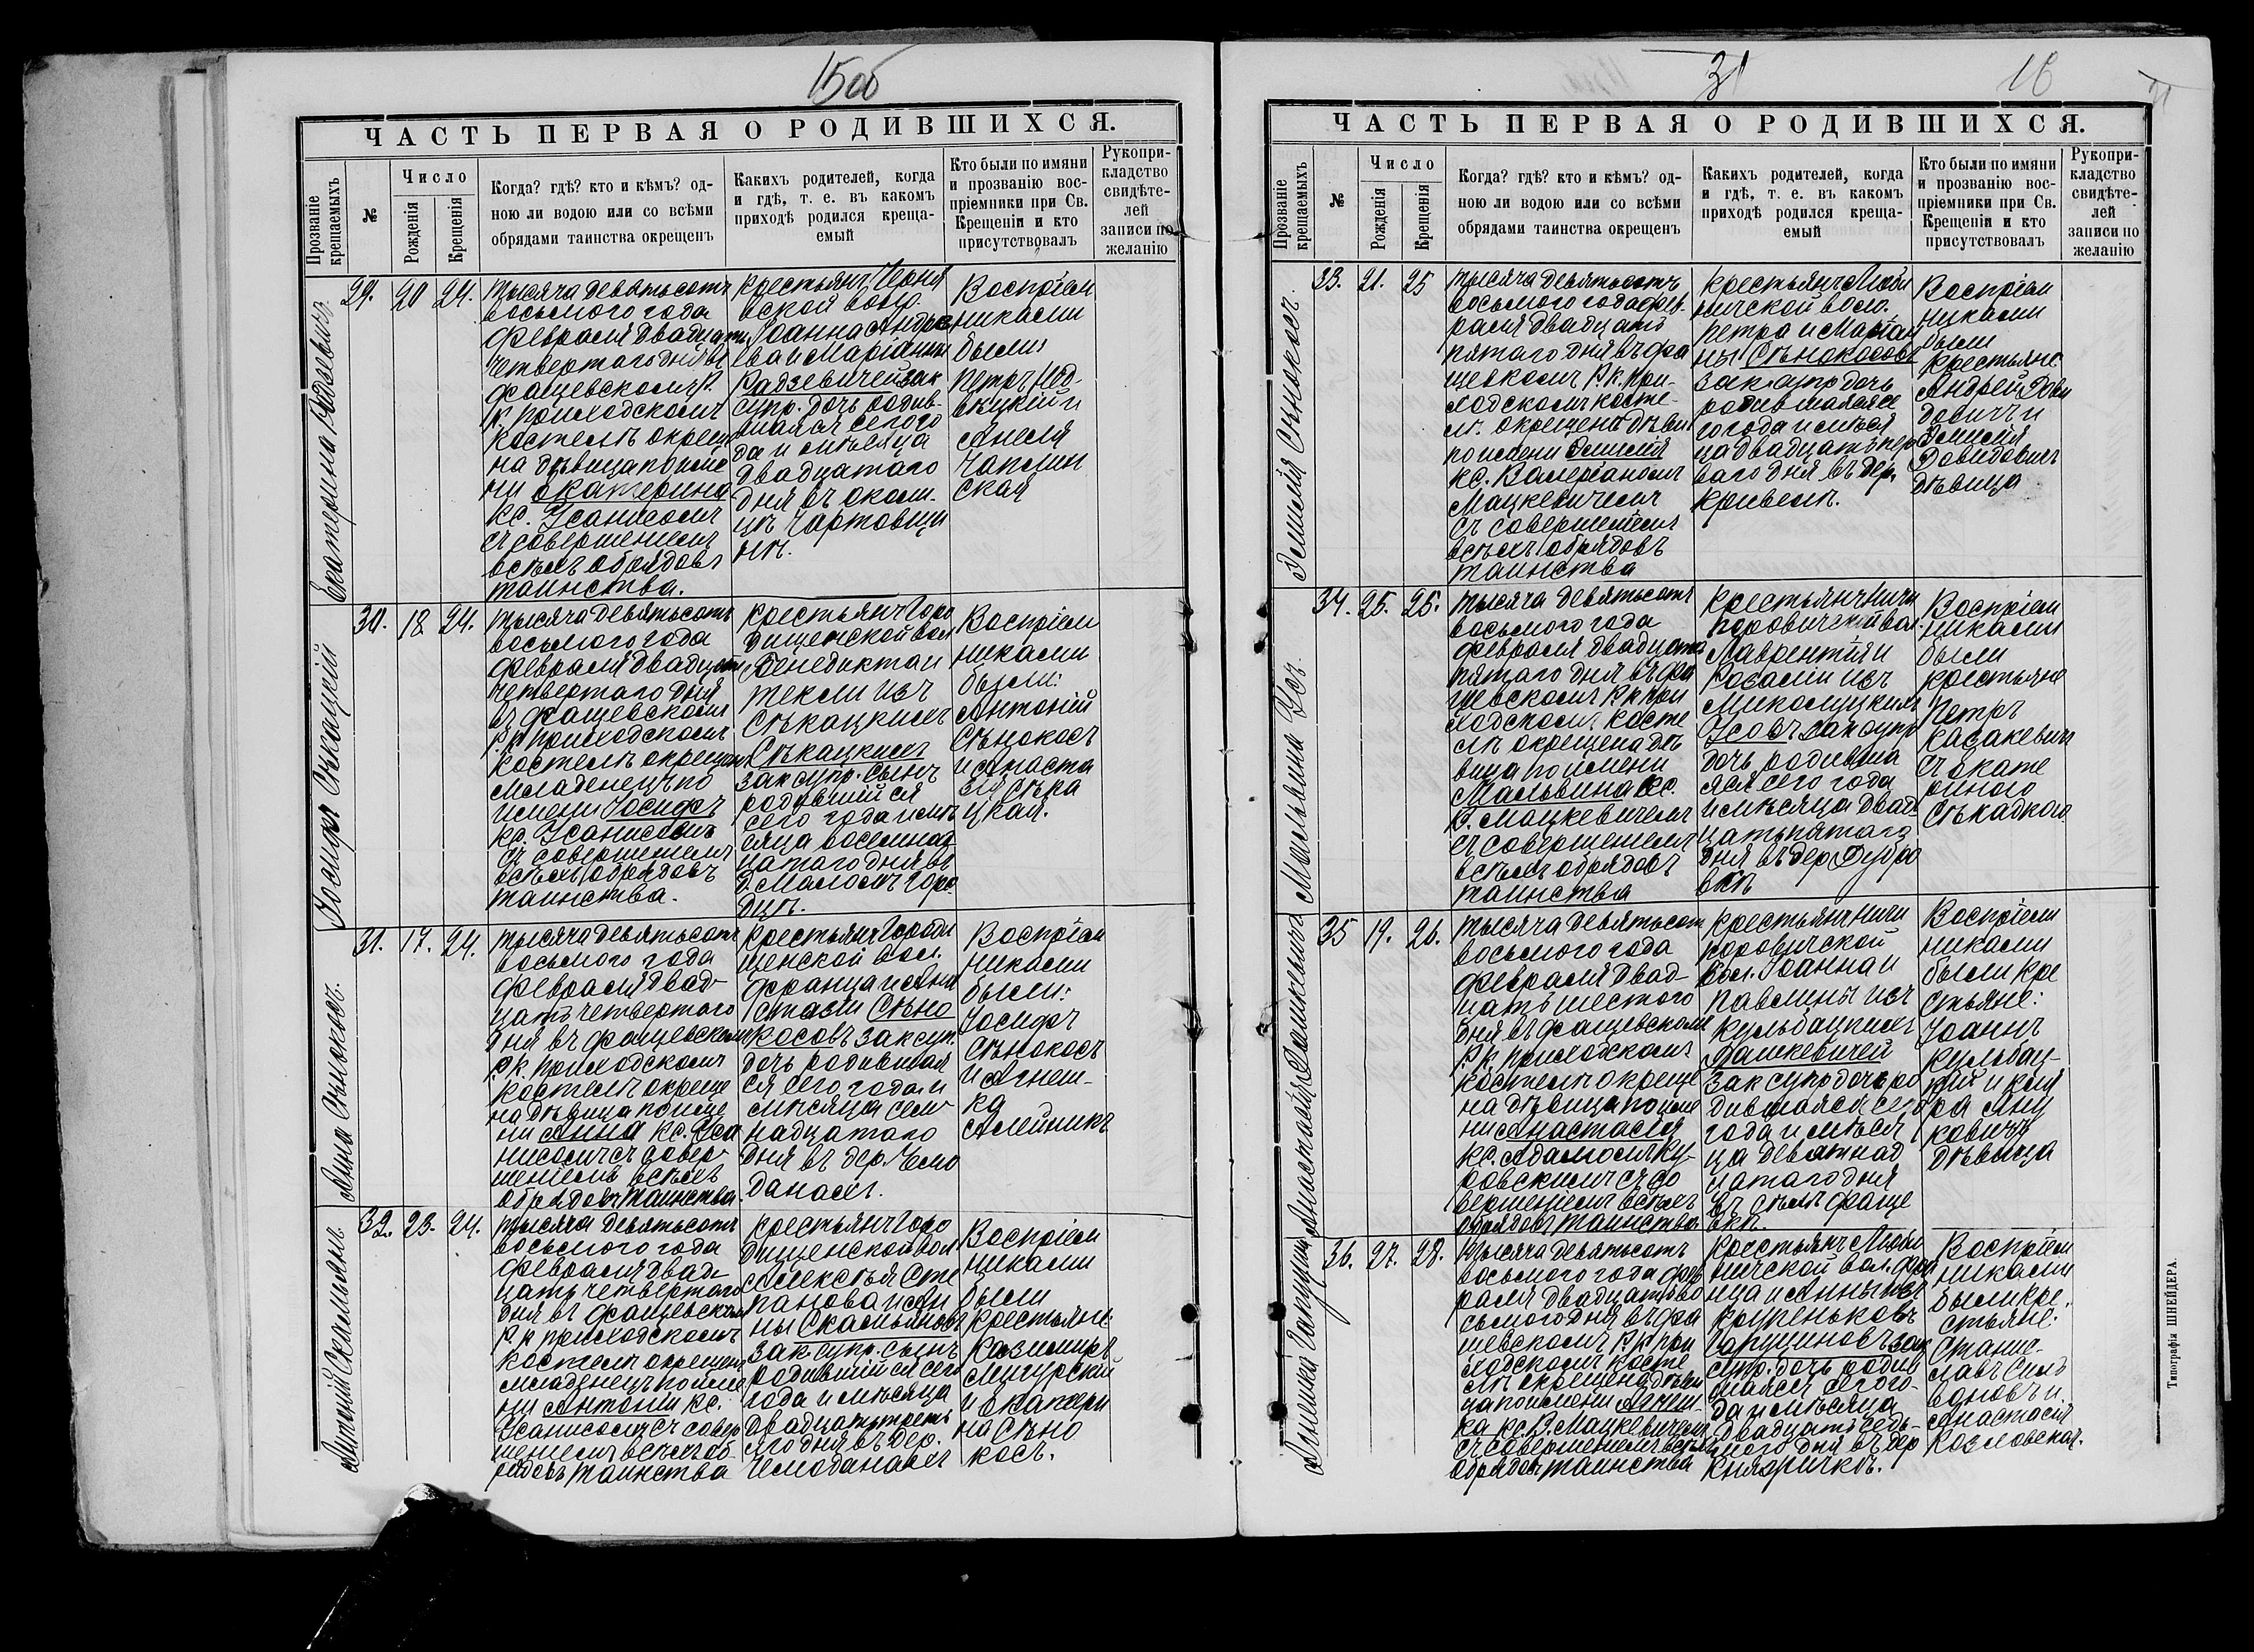 15об
ЧАСТЬ ПЕРВАЯ О РОДИВШИХСЯ.
Прозваніе крещаемыхъ
№
Число
Рожденія
Крещенія
Когда? гдѣ? кто и кѣмъ? од-
ною ли водою или со всѣми
обрядами таинства окрещенъ
Какихъ родителей, когда
и гдѣ, т. е. въ какомъ
приходѣ родился креща-
емый
Кто были по имяни
и прозванію вос-
пріемники при Св.
Крещеніи и кто
присутствовалъ
Рукопри-
кладство
свидѣте-
лей
записи по
желанію
Екатерина
29. 20 24.
тысяча девятьсотъ
восьмого года
февраля двадцать
четвертаго дня въ
Фащевскомъ Р.
К. приходскомъ
костелѣ окреще
на дѣвица по име
ни Екатерина
кс. Усанисомъ
съ совершеніемъ
всѣхъ обрядовъ
таинства.
крестьянъ Черня
вской вол.
Іоанна Андре
ева и Маріанны
Радзевичей зак
супр. дочь родив
шаяся сего го
да и мѣсяца
двадцатаго
дня въ околи
цѣ Чартовщи
нѣ.
Воспріем
никами
были:
Петръ
и
Анеля
Чаплин
ская
Іосифъ Сѣкацкій
30. 18 24.
тысяча девятьсотъ
восьмого года
февраля двадцать
четвертаго дня
въ Фащевскомъ
Р. К. приходскомъ
костелѣ окрещенъ
младенецъ по
имени Іосифъ
кс. Усанисомъ
съ совершеніемъ
всѣхъ обрядовъ
таинства.
крестьянъ Горо
дищенской вол
Бенедикта и
Текли изъ
Сѣкацкихъ
Сѣкацкихъ
зак супр. сынъ
родившійся
сего года и мѣ
сяца восемнад
цатаго дня въ
д. Маломъ Горо
дцѣ.
Воспріем
никами
были:
Антоній
Сѣнокосъ
и Анаста
сія Сѣка
цкая.
Анна Сѣнокосъ.
31. 17. 24.
тысяча девятьсотъ
восьмого года
февраля двад-
цать четвертаго
дня въ Фащевскомъ
Р. К. приходскомъ
костелѣ окреще
на дѣвица по име
ни Анна кс. Уса
нисомъ съ совер-
шеніемъ всѣхъ
обрядовъ таинства.
крестьянъ Городи
щенской вол.
Франца и Ана
стазіи Сѣно
косовъ зак суп.
дочь родившая
ся сего года и
мѣсяца сем
надцатаго
дня въ дер. Чемо
данахъ.
Воспріем
никами
были:
Іосифъ
Сѣнокосъ
и Агнеш-
ка
Алейникъ
Антоній Скамьянъ
32. 23. 24.
тысяча девятьсотъ
восьмого года
февраля двад-
цать четвертаго
дня въ Фащевскомъ
Р. К. приходскомъ
костелѣ окрещенъ
младенецъ по име
ни Антоній кс.
Усанисомъ съ совер
шеніемъ всѣхъ об-
рядовъ таинства
крестьянъ Горо
дищенской вол
Алексѣя Сте
панова и Ан
ны Скамьяновъ
зак. супр. сынъ
родившійся сего
года и мѣсяца
двадцать треть
яго дня въ дер.
Чемоданахъ
Воспріем
никами
были
крестьяне:
Казимиръ
и Екатери
на Сѣно
косъ.
31
16
ЧАСТЬ ПЕРВАЯ О РОДИВШИХСЯ.
Прозваніе крещаемыхъ
№
Число
Рожденія
Крещенія
Когда? гдѣ? кто и кѣмъ? од-
ною ли водою или со всѣми
обрядами таинства окрещенъ
Какихъ родителей, когда
и гдѣ, т. е. въ какомъ
приходѣ родился креща-
емый
Кто были по имяни
и прозванію вос-
пріемники при Св.
Крещеніи и кто
присутствовалъ
Рукопри-
кладство
свидѣте-
лей
записи по
желанію
Эмилія Сѣнокосъ.
33. 21. 25
тысяча девятьсотъ
восьмого года фев-
раля двадцать
пятаго дня въ Фа
щевскомъ Р. К. при-
ходскомъ косте-
лѣ окрещена дѣвица
по имени Эмилія
кс. Валеріаномъ
Мацкевичемъ
съ совершеніемъ
всѣхъ обрядовъ
таинства
крестьянъ
вол.
Петра и Маріан
ны Сѣнокосовъ
зак. супр дочь
родившаяся се
го года и мѣся
ца двадцать пер
ваго дня въ дер.
Кривелѣ.
Воспріем
никами
были
крестьяне
Андрей Дави
довичъ и
Эмилія
Давидовичъ
дѣвица
Мальвина Усъ.
34. 25. 25.
тысяча девятьсотъ
восьмого года
февраля двадцать
пятаго дня въ Фа
щевскомъ Р К при
ходскомъ косте
лѣ окрещена дѣ
вица по имени
Мальвина кс.
В. Мацкевичемъ
съ совершеніемъ
всѣхъ обрядовъ
таинства
крестьянъ Ничи
поровичской вол.
Лаврентія и
Розаліи изъ
Усовъ зак супр
дочь родивша
яся сего года
и мѣсяца двад
цать пятаго
дня въ дер Дубро
вкѣ
Воспріем
никами
были
крестьяне
Петръ
Казакевичъ
съ Екате
риною
Сѣкацкою
Анастасія Дашкевичъ
35 19. 26.
тысяча девятьсотъ
восьмого года
февраля двад-
цать шестого
дня въ Фащевскомъ
Р. К. приходскомъ
костелѣ окреще
на дѣвица по име
ни Анастасія
кс. Адамомъ Ку-
ровскимъ съ со
вершеніемъ всѣхъ
обрядовъ таинства
крестьянъ Ничи
поровичской
вол. Іоанна и
Павлины изъ
Кульбацкихъ
Дашкевичей
зак супр дочь ро
дившаяся сего
года и мѣся
ца девятнад
цатаго дня
въ селѣ Фаще
вкѣ.
Воспріем
никами
были кре
стьяне:
Іоаннъ
Кульбац-
кій и Кля
ра Яну
ковичъ
дѣвица
Агнешка Гапушинъ
36. 27. 28.
тысяча девятьсотъ
восьмого года фев
раля двадцать во
сьмого дня въ Фа
щевскомъ Р К при
ходскомъ косте
лѣ окрещена дѣви
ца по имени Агнеш-
ка кс. В. Мацкевичемъ
съ совершеніемъ всѣхъ
обрядовъ таинства
крестьянъ
вол. Фран
ца и Анны изъ
зак
супр. дочь родив
шаяся сего го-
да и мѣсяца
двадцать седь-
мого дня въ дер
Княжичкѣ.
Воспріем
никами
были кре
стьяне:
Станис-
лавъ
и
Анастасія
Козловская.
Типографія ШНЕЙДЕРА.